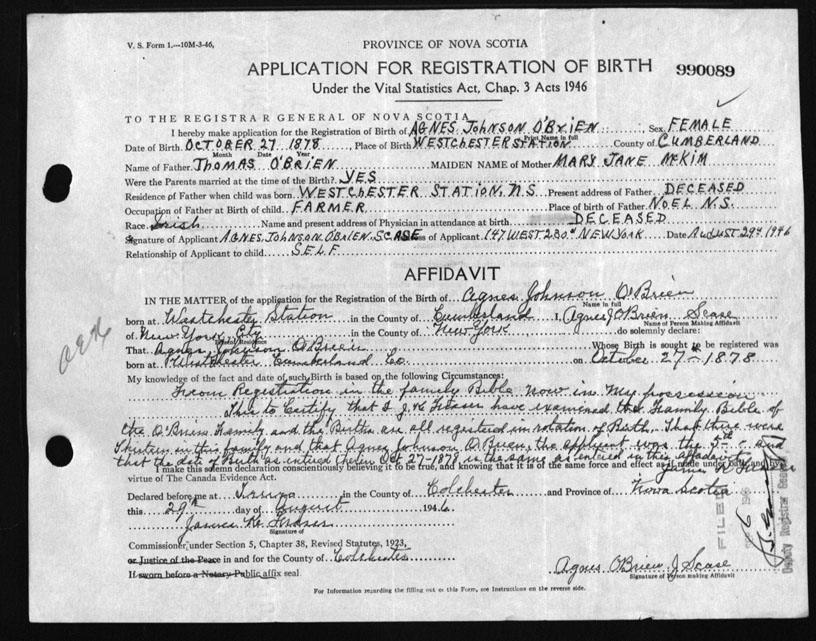 V. S. Form 1.—10M-3-46,
PROVINCE OF NOVA SCOTIA
APPLICATION FOR REGISTRATION OF BIRTH
990089
Under the Vital Statistics Act, Chap. 3 Acts 1946
TO THE REGISTRAR GENERAL OF NOVA SCOTIA
I hereby make application for the Registration of Birth of AGNES JOHNSON O'BRIEN Sex FEMALE
Print Name in full
Date of Birth OCTOBER 27 1878, Place of Birth WESTCHESTER STATION County of CUMBERLAND
Month Date Year
Name of Father THOMAS O'BRIEN MAIDEN NAME of Mother MARY JANE McKIM
Were the Parents married at the time of the Birth? YES
Residence of Father when child was born WESTCHESTER STATION, N.S. Present address of Father DECEASED
Occupation of Father at Birth of child FARMER Place of birth of Father NOEL N.S.
Race Irish Name and present address of Physician in attendance at birth DECEASED
Signature of Applicant AGNES JOHNSON OBRIEN SCASE of Applicant 147 WEST 230 NEW YORK Date AUGUST 29th 1946
Relationship of Applicant to child SELF
AFFIDAVIT
IN THE MATTER of the application for the Registration of the Birth of Agnes Johnson O'Brien
Name in full
born at Westchester Station in the County of Cumberland I, Agnes J O'Brien Scase
Name of Person Making Affidavit
of New York City in the County of New York do solemnly declare:
Residence
That Agnes Johnson O'Brien Whose Birth is sought to be registered was
born at Westchester Cumberland Co. on October 27-1878
My knowledge of the fact and date of such Birth is based on the following Circumstances:
From Registration in the family Bible now in my possession
This to Certify that I J.K. Fraser have examined the Family Bible of
the O'Brien Family and the Births are all registered in rotation of Birth. That there were
thirteen in this family and that Agnes Johnson O'Brien, the applicant was the 5th and
that the date of Birth as entered therein Oct 27-1878 is the same as entered in this affidavit
James K Fraser
I make this solemn declaration conscientiously believing it to be true, and knowing that it is of the same force and effect as if made under oath and by
virtue of The Canada Evidence Act.
Declared before me at Truro in the County of Colchester and Province of Nova Scotia
this 29th day of August 1946
James K. Fraser
Signature of
Commissioner, under Section 5, Chapter 38, Revised Statutes, 1923,
or Justice of the Peace in and for the County of Colchester
If sworn before a Notary Public affix seal.
Agnes O'Brien J Scase
Signature of Person making Affidavit
For Information regarding the filling out of this Form, see Instructions on the reverse side.
FILED
Deputy Registrar General